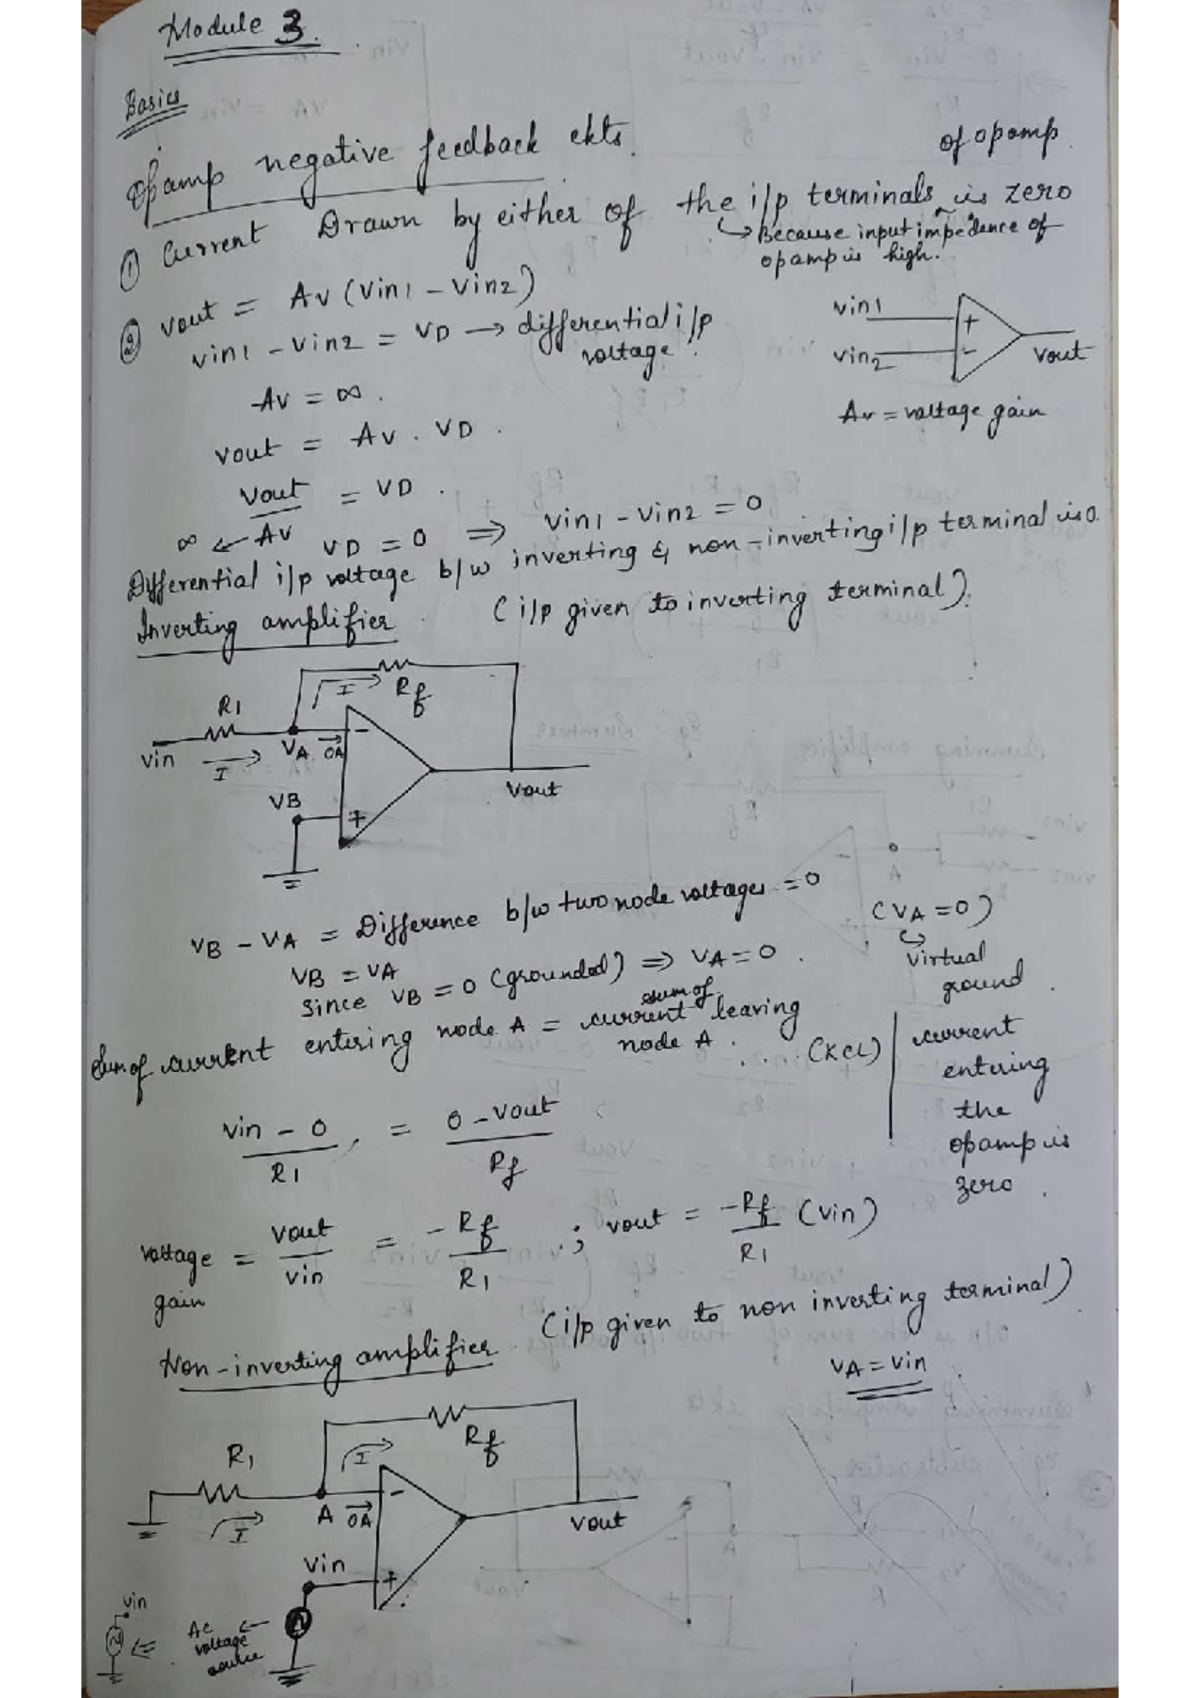 Module 3.
Basics
Opamp negative feedback ckts.
① Current Drawn by either of the i/p terminals of opamp is zero
↳ Because input impedence of
opamp is high.
② Vout = Av (Vin1 - Vin2)
Vin1 - Vin2 = VD → differential i/p
voltage.
Vin1
+
Vin2
-
Vout
Av = voltage gain
Av = ∞.
Vout = Av . VD.
Vout / Av = VD.
∞ ← Av
VD = 0 ⇒ Vin1 - Vin2 = 0
Differential i/p voltage b/w inverting & non-inverting i/p terminal is 0.
Inverting amplifier. (i/p given to inverting terminal).
R1
I
Rf
Vin
I
VA
OA
-
VB
+
Vout
VB - VA = Difference b/w two node voltages = 0
VB = VA
(VA = 0)
↳ virtual
ground.
Since VB = 0 (grounded) ⇒ VA = 0.
Sum of current entering node A = sum of current leaving
node A. (KCL)
current
entering
the
opamp is
zero.
Vin - 0 / R1 = 0 - Vout / Rf
voltage gain = Vout / Vin = -Rf / R1 ; Vout = -Rf / R1 (Vin)
Non-inverting amplifier. (i/p given to non inverting terminal)
VA = Vin
R1
I
Rf
I
A
OA
-
Vout
Vin
+
Vin
⇐
AC
voltage
source
←